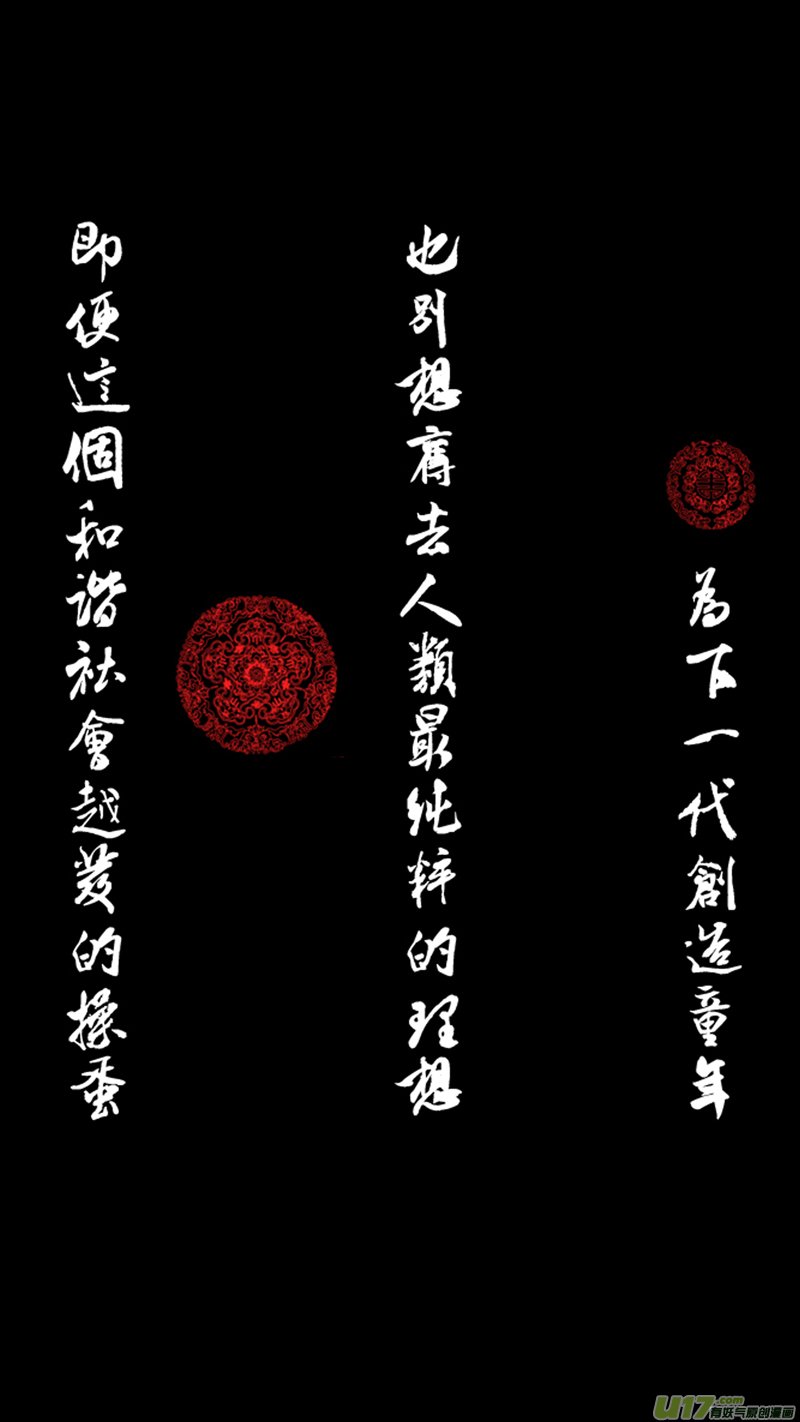 即便這個和諧社會越發的操蛋
也別想奪去人類最純粹的理想
為下一代創造童年
U17.com
有妖气原创漫画